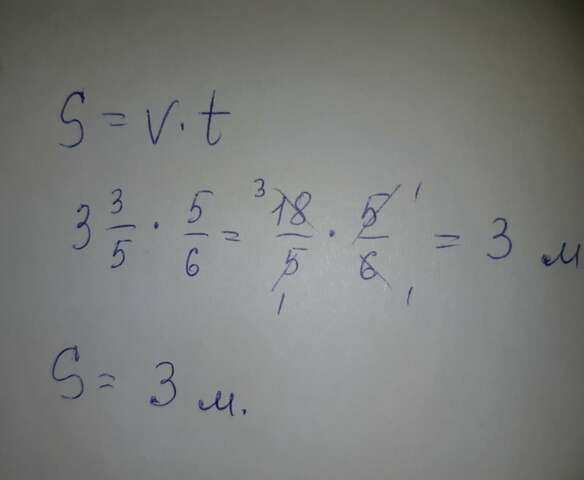 S = v · t
3 3/5 · 5/6 = 3 18/5 1 · 5 1/6 1 = 3 м
S = 3 м.